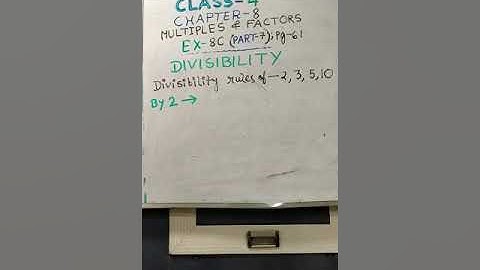 CLASS-4
CHAPTER-8
MULTIPLES & FACTORS
EX-8C (PART-7); Pg-61
DIVISIBILITY
Divisibility rules of - 2, 3, 5, 10
By 2 →